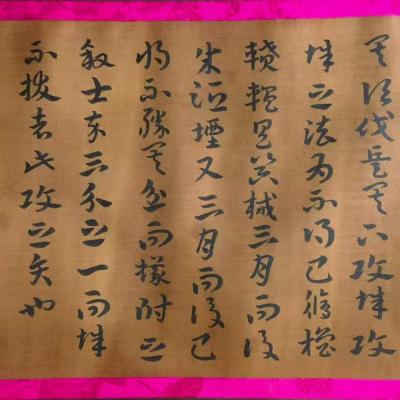 其次伐兵其下攻城攻
城之法為不得已脩櫓
轒轀具器械三月而後
成距堙又三月而後已
將不勝其忿而蟻附之
殺士卒三分之一而城
不拔者此攻之災也